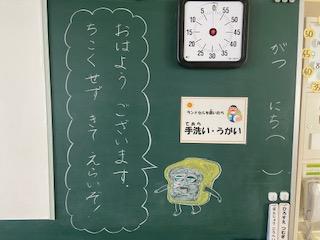 がつ にち( )
おはよう ございます。
ちこくせず きて えらいぞ!
ランドセルを置いたら
てあら
手洗い・うがい
60
5
10
15
20
25
30
35
40
45
50
55